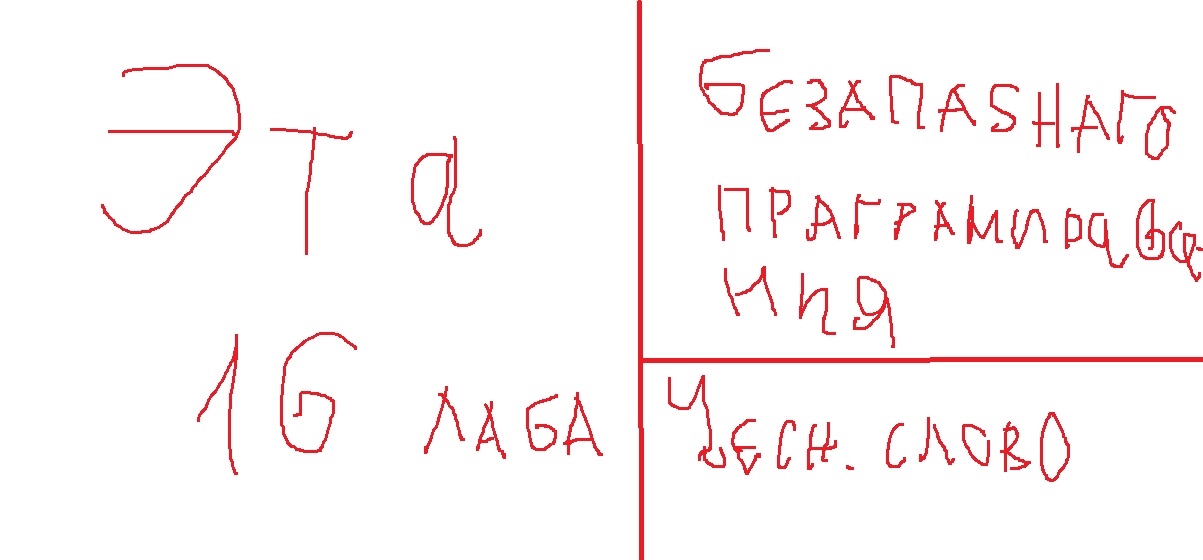 Эта
16 ЛАБА
БЕЗАПАSНАГО
ПРАГРАМИРАВА-
НИЯ
ЧЕСН. СЛОВО